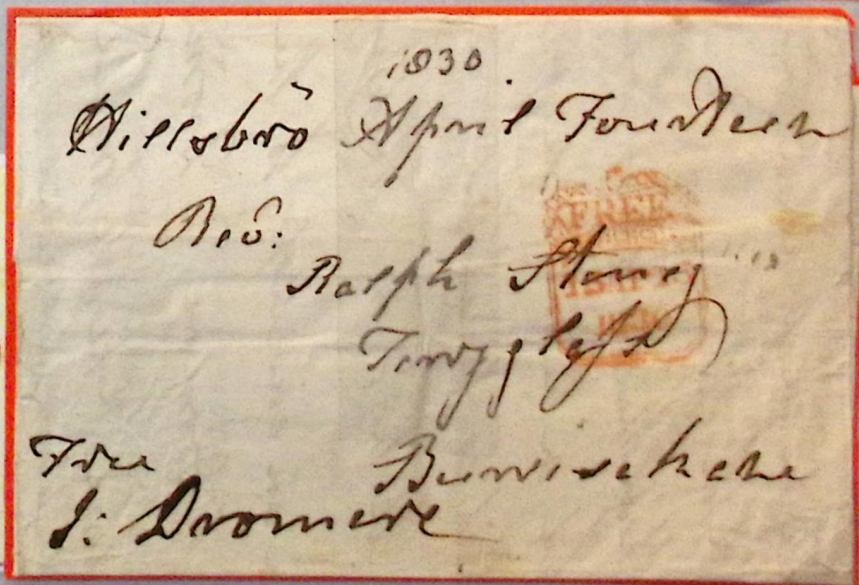 1830
Hillsbro April Fourteen
Rev:
Ralph Stoney
Terryglass
FREE
15 AP
Free
Burrisokane
J: Dromore